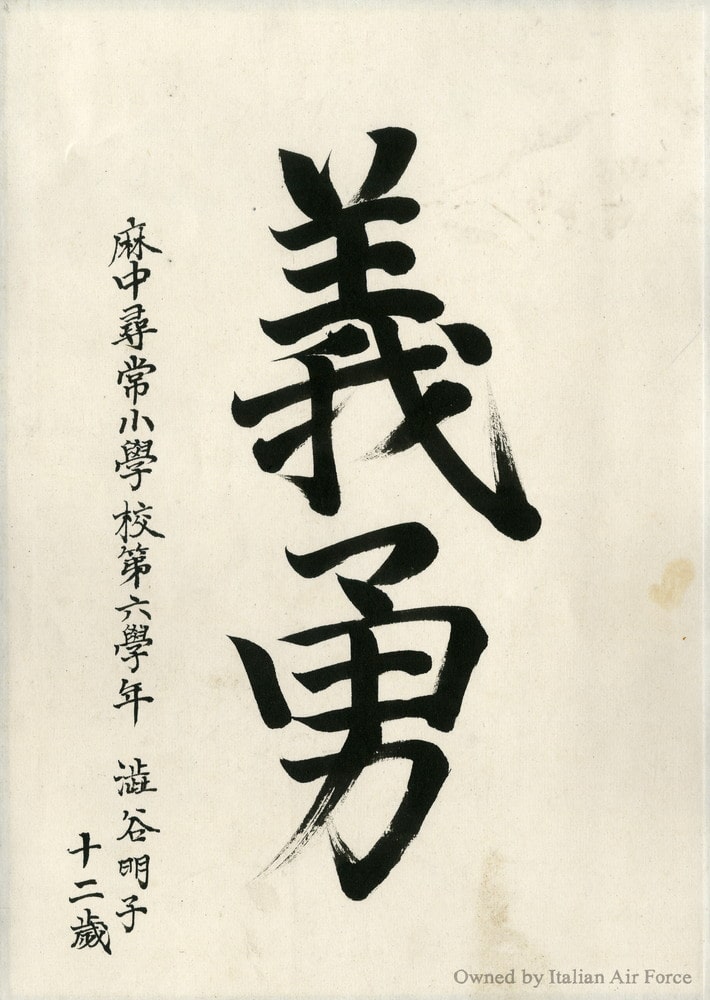 義勇
麻中尋常小學校第六學年 澁谷明子
十二歲
Owned by Italian Air Force